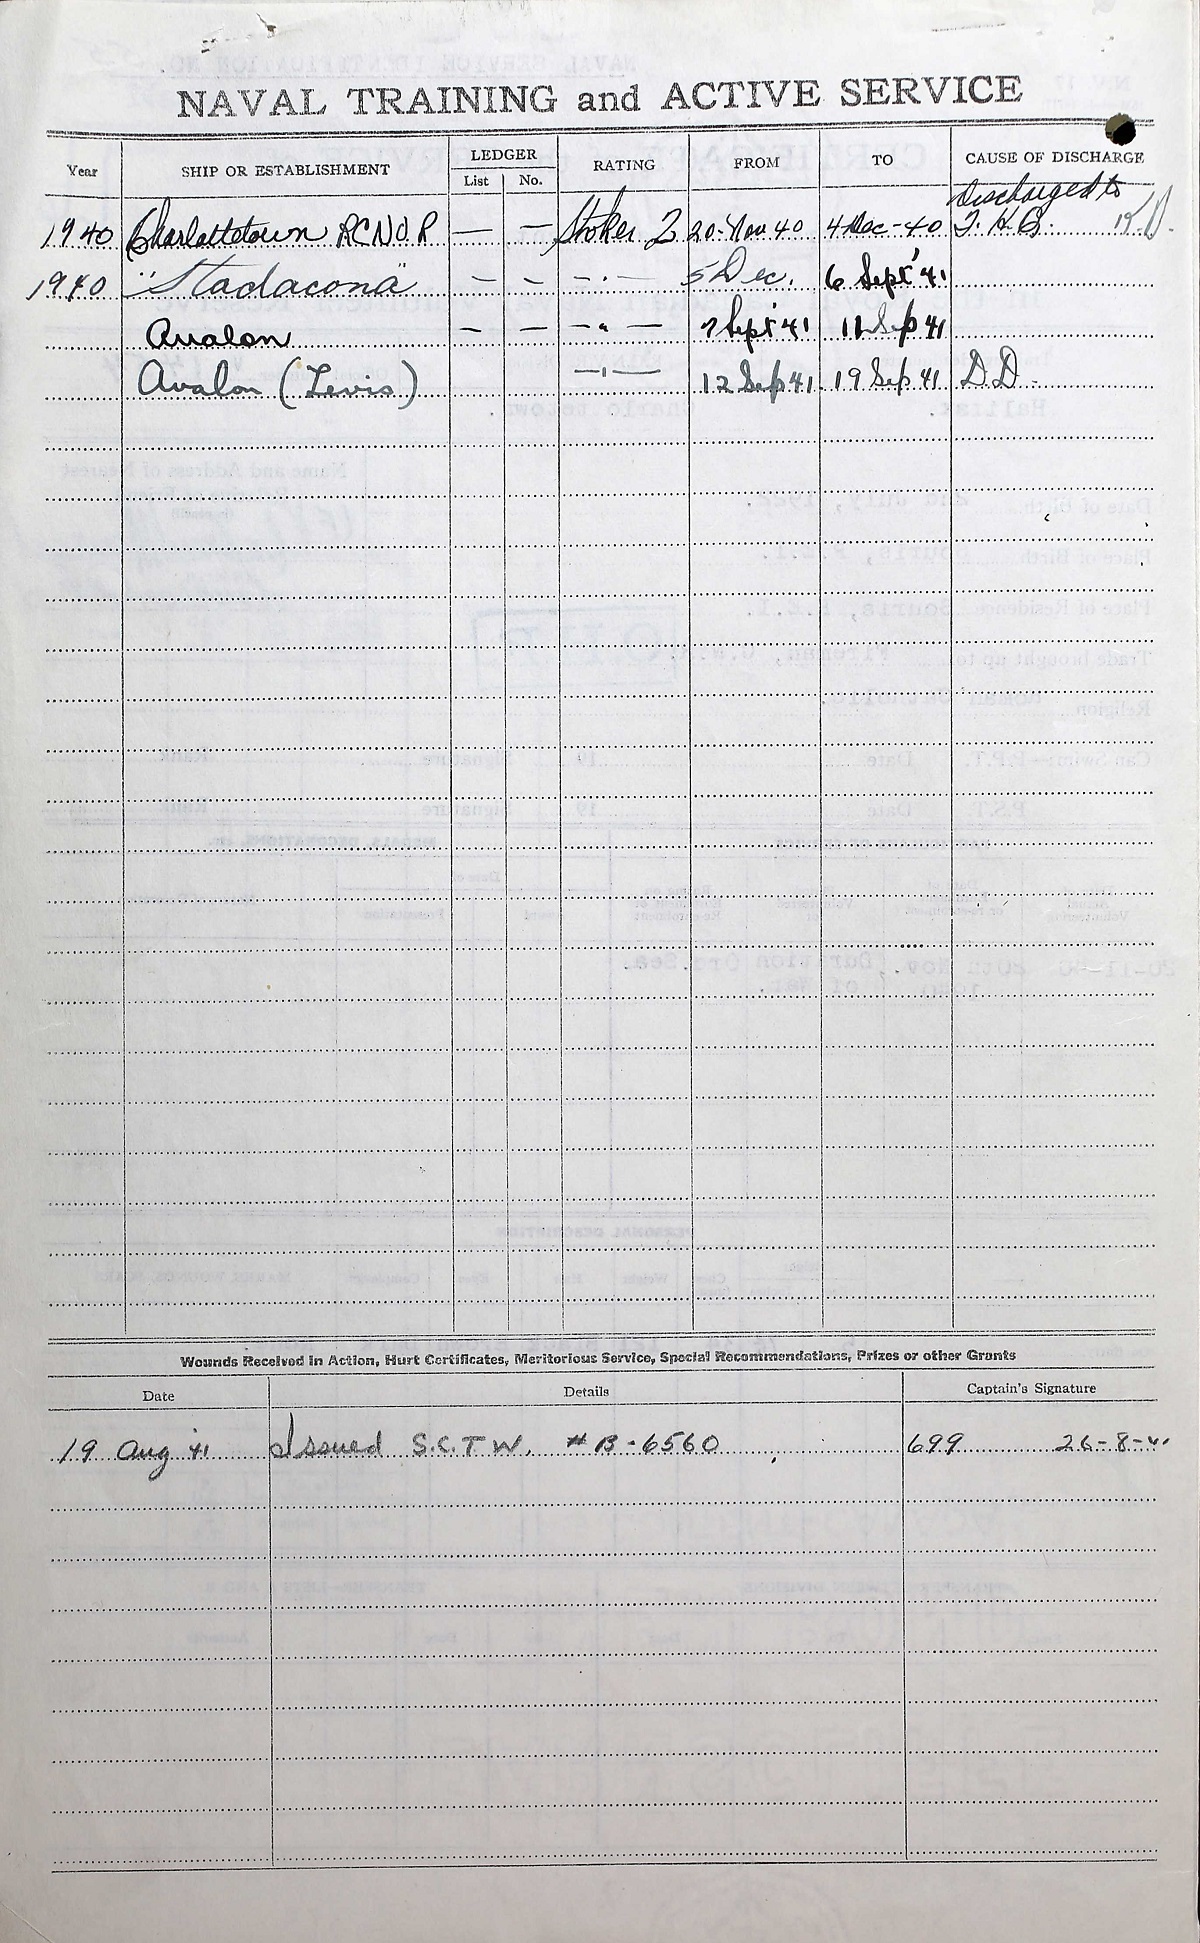 NAVAL TRAINING and ACTIVE SERVICE
Year SHIP OR ESTABLISHMENT LEDGER RATING FROM TO CAUSE OF DISCHARGE
List No.
Discharged to
1940 Charlottetown RCNVR — — Stoker 2 20-Nov 40 4 Dec-40
1940 "Stadacona" — — — " — 5 Dec. 6 Sept '41
Avalon — — — " — 7 Sept '41 11 Sep 41
Avalon (Levis) — " — 12 Sep 41 19 Sep 41 D.D.
Wounds Received in Action, Hurt Certificates, Meritorious Service, Special Recommendations, Prizes or other Grants
Date Details Captain's Signature
19 Aug '41 Issued S.C.T.W. # B-6560 699 26-8-41